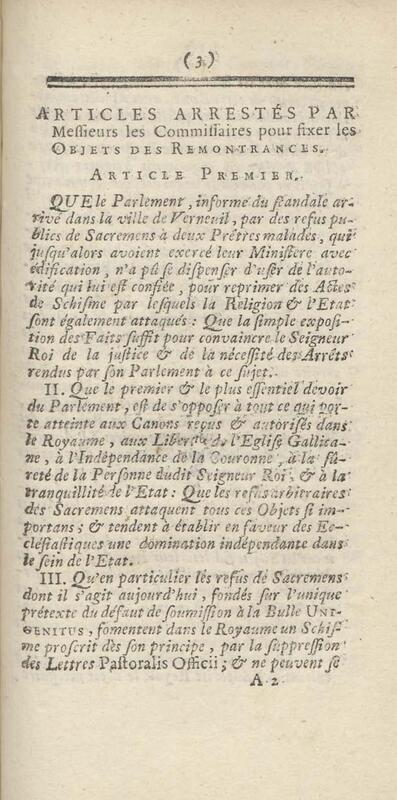 (3)
ARTICLES ARRESTÉS PAR
Meſſieurs les Commiſſaires pour fixer les
OBJETS DES REMONTRANCES.
ARTICLE PREMIER.
QUE le Parlement, informé du ſcandale ar-
rivé dans la ville de Verneuil, par des refus pu-
blics de Sacremens à deux Prêtres malades, qui
juſqu'alors avoient exercé leur Miniſtere avec
édification, n'a pû ſe diſpenſer d'uſer de l'auto-
rité qui lui eſt confiée, pour reprimer des Actes
de Schiſme par leſquels la Religion & l'Etat
ſont également attaqués: Que la ſimple expoſi-
tion des Faits ſuffit pour convaincre le Seigneur
Roi de la juſtice & de la néceſſité des Arrêts
rendus par ſon Parlement à ce ſujet.
II. Que le premier & le plus eſſentiel devoir
du Parlement, eſt de s'oppoſer à tout ce qui por-
te atteinte aux Canons reçus & autoriſés dans
le Royaume, aux Libertés de l'Egliſe Gallica-
ne, à l'Indépendance de la Couronne, à la ſû-
reté de la Perſonne dudit Seigneur Roi, & à la
tranquillité de l'Etat: Que les refus arbitraires
des Sacremens attaquent tous ces Objets ſi im-
portans; & tendent à établir en faveur des Ec-
cléſiaſtiques une domination indépendante dans
le ſein de l'Etat.
III. Qu'en particulier les refus de Sacremens
dont il s'agit aujourd'hui, fondés ſur l'unique
prétexte du défaut de ſoumiſſion à la Bulle UNI-
GENITUS, fomentent dans le Royaume un Schiſ-
me proſcrit dès ſon principe, par la ſuppreſſion
des Lettres Paſtoralis Officii; & ne peuvent ſe
A 2